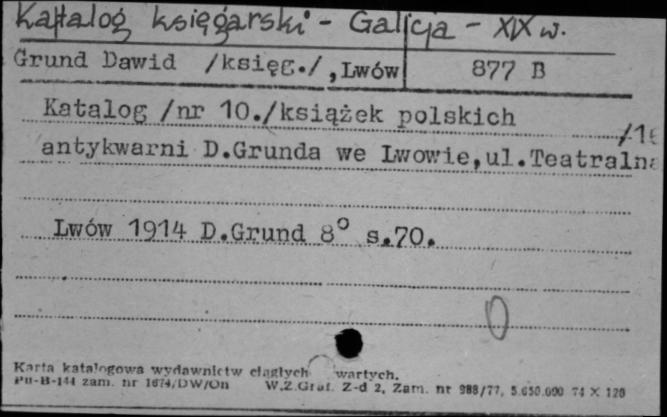 Katalog księgarski - Galicja - XIX w.
Grund Dawid /księg./, Lwów 877 B
Katalog /nr 10./książek polskich
antykwarni D.Grunda we Lwowie,ul.Teatralna
Lwów 1914 D.Grund 8° s.70.
0
Karta katalogowa wydawnictw ciągłych wartych.
Pu-B-144 zam. nr 1674/DW/On W.Z.Graf. Z-d 2, Zam. nr 988/77, 5.650.000 74 X 120